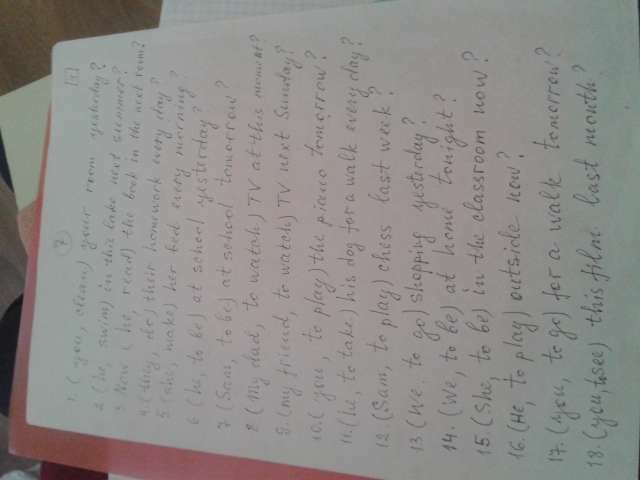 7
1. (you, clean) your room yesterday?
2. (he, swim) in this lake next summer?
3. Now (he, read) the book in the next room?
4. (they, do) their homework every day?
5. (she, make) her bed every morning?
6. (he, to be) at school yesterday?
7. (Sam, to be) at school tomorrow?
8. (My dad, to watch) TV at this moment?
9. (my friend, to watch) TV next Sunday?
10. (you, to play) the piano tomorrow?
11. (he, to take) his dog for a walk every day?
12. (Sam, to play) chess last week?
13. (We, to go) shopping yesterday?
14. (We, to be) at home tonight?
15. (She, to be) in the classroom now?
16. (He, to play) outside now?
17. (you, to go) for a walk tomorrow?
18. (you, to see) this film last month?